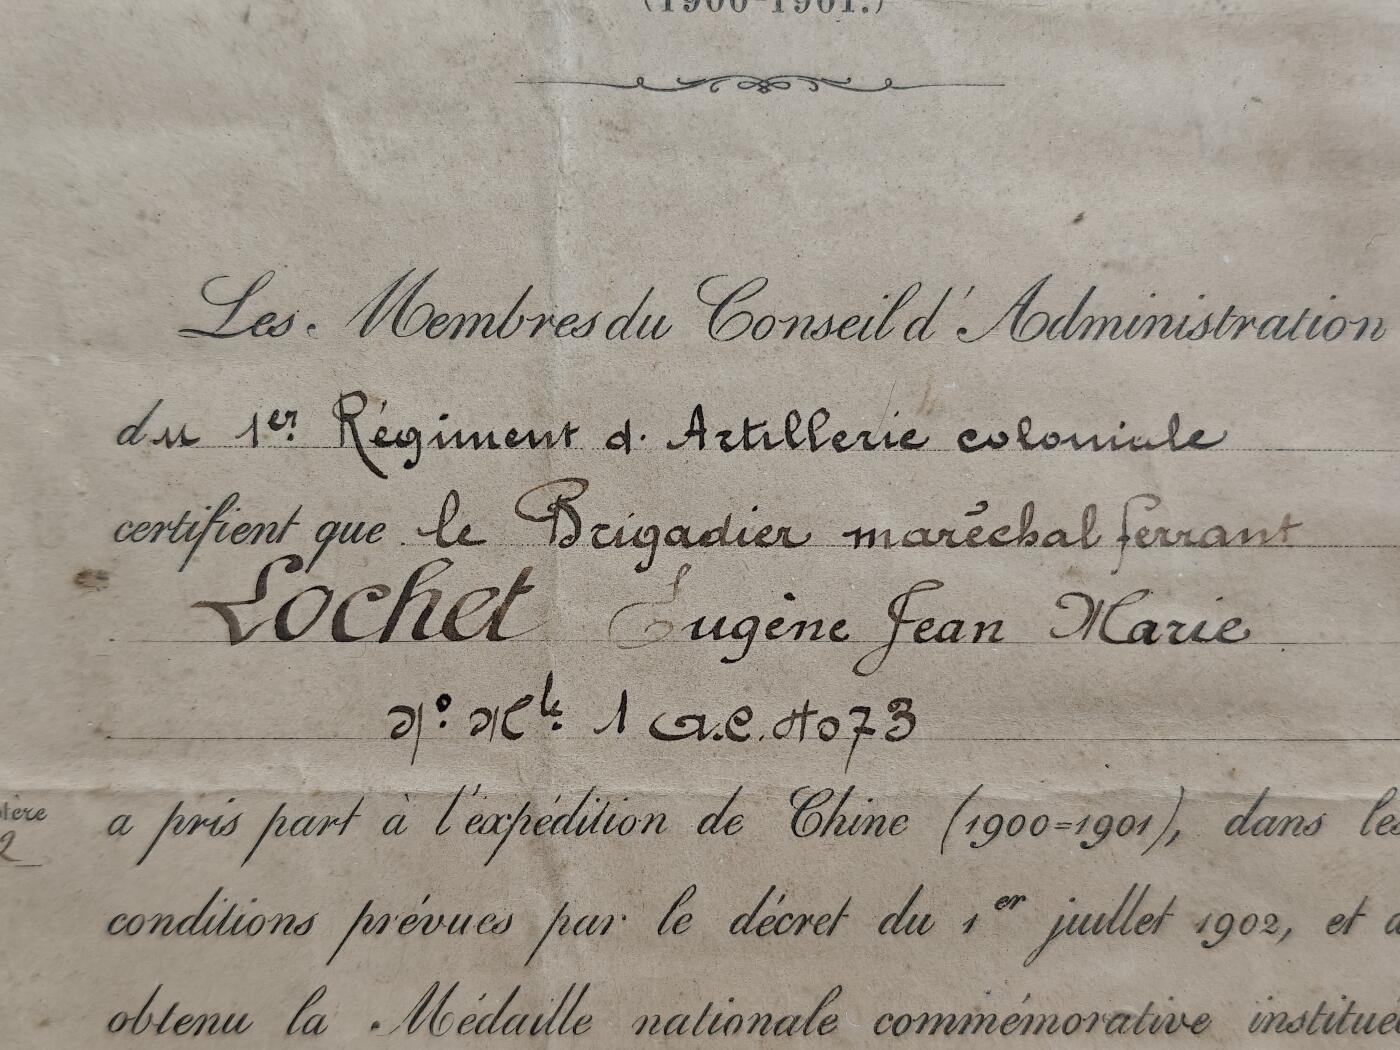 (1900-1901.)
Les Membres du Conseil d'Administration
du 1er Régiment d'Artillerie coloniale
certifient que le Brigadier maréchal ferrant
Lochet Eugène Jean Marie
N° Mle 1 A.C. 4073
a pris part à l'expédition de Chine (1900=1901), dans les
conditions prévues par le décret du 1er juillet 1902, et a
obtenu la Médaille nationale commémorative instituée